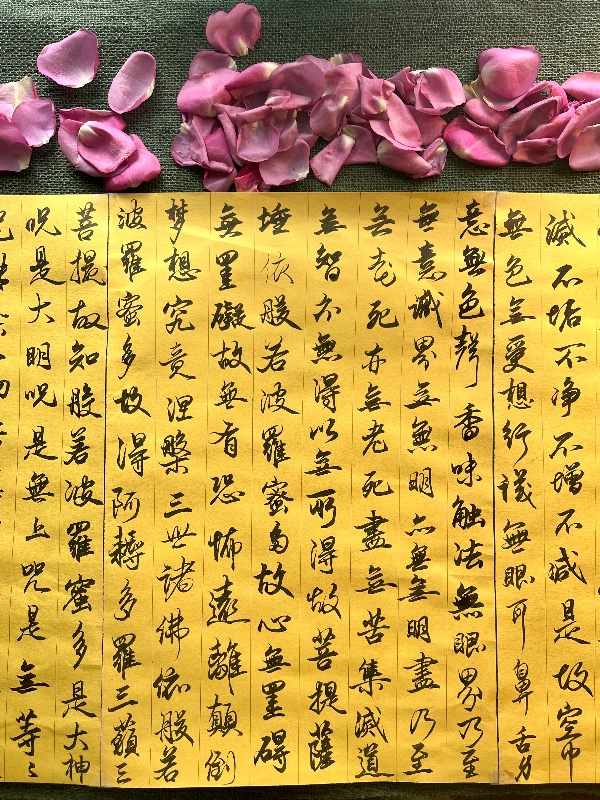 滅不垢不净不增不减是故空中
無色無受想行識無眼耳鼻舌身
意無色聲香味触法無眼界乃至
無意識界無無明亦無無明盡乃至
無老死亦無老死盡無苦集滅道
無智亦無得以無所得故菩提薩
埵依般若波羅蜜多故心無罣碍
無罣礙故無有恐怖遠離顛倒
梦想究竟涅槃三世諸佛依般若
波羅蜜多故得阿耨多羅三藐三
菩提故知般若波羅蜜多是大神
咒是大明咒是無上咒是無等々